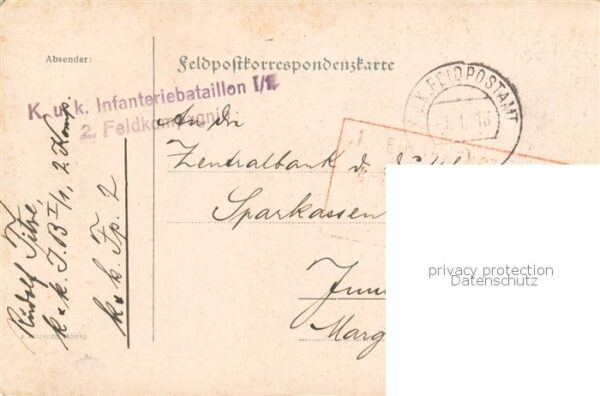 Absender:
Feldpostkorrespondenzkarte
K. u. k. Infanteriebataillon I/1
2. Feldkompagnie
K. u. K. FELDPOSTAMT
An die
Zentralbank d.
Sparkassen
Marg
Rudolf
k. u. k. I. B. I/1, 2. Komp.
k. u. k. Fp. 2
privacy protection
Datenschutz